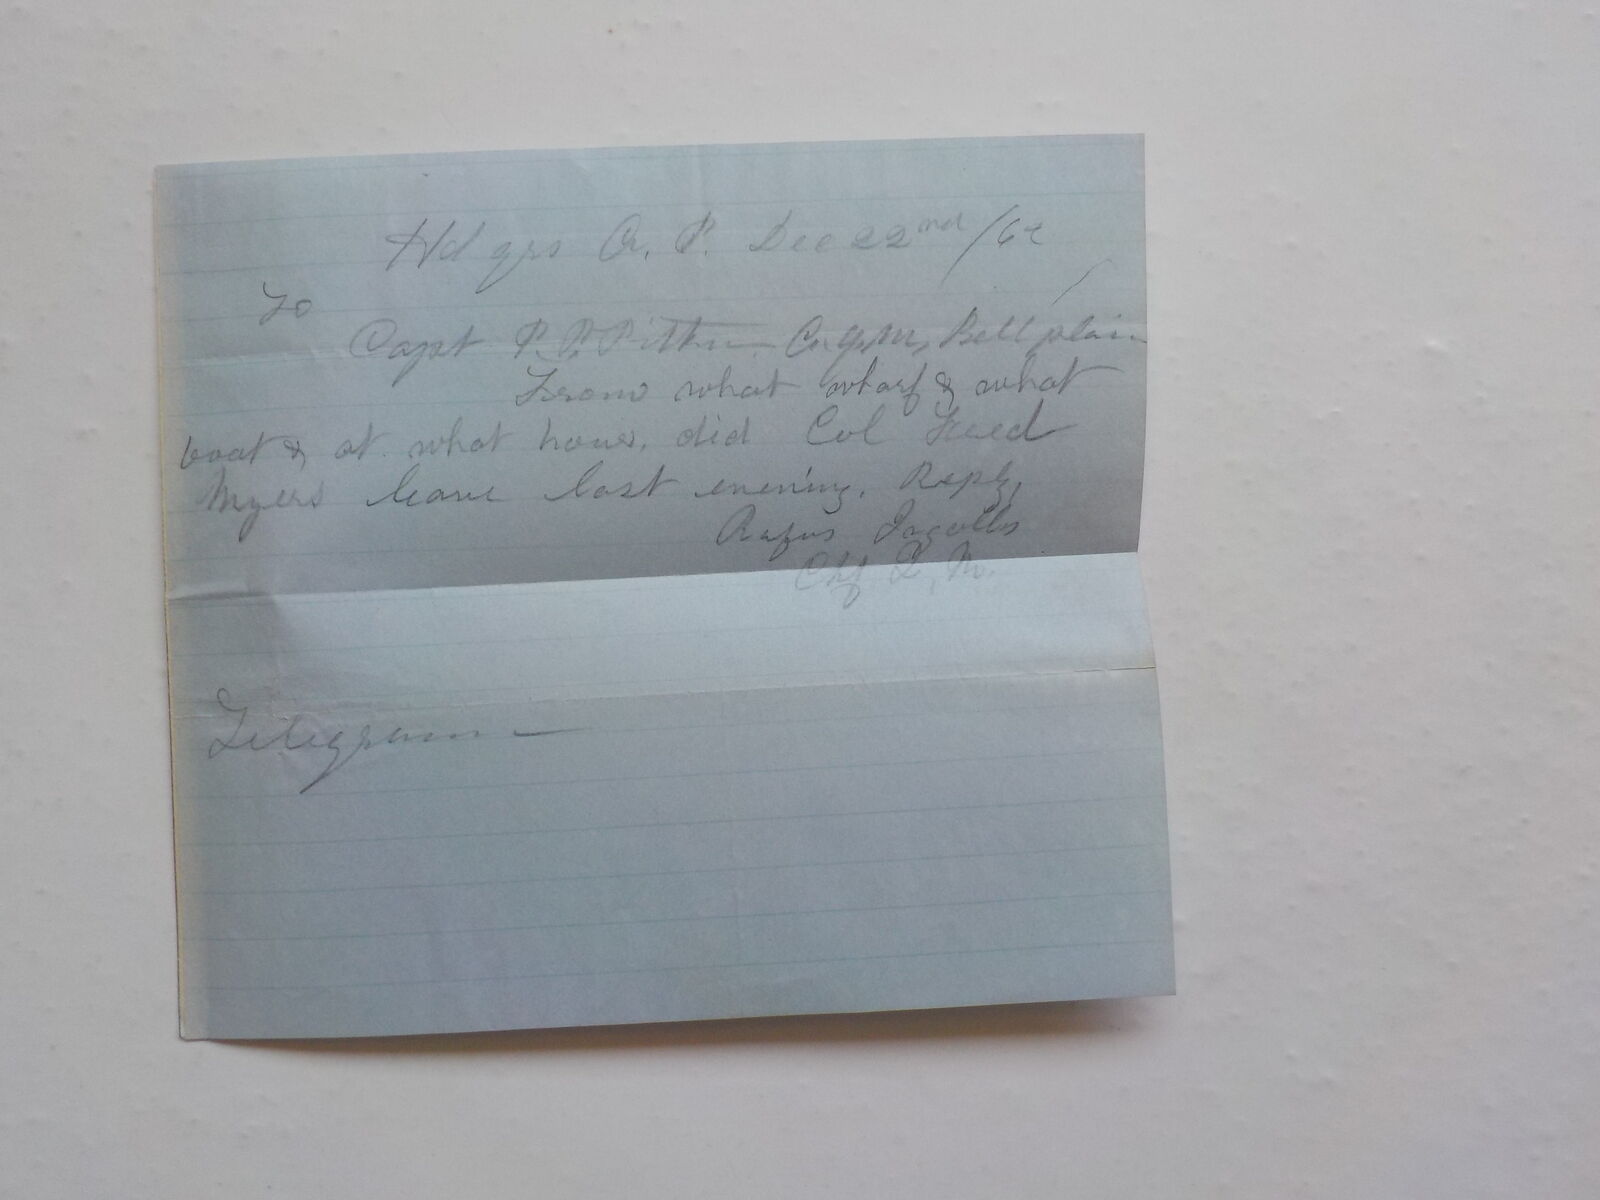 Hd qrs A. P. Dec 22nd /62
To
Capt P. P. Pitkin Bell plain
From what wharf & what
boat & at what hour, did Col Fred
Myers leave last evening. Reply,
Rufus Ingalls
Chf Q. M.
Telegram